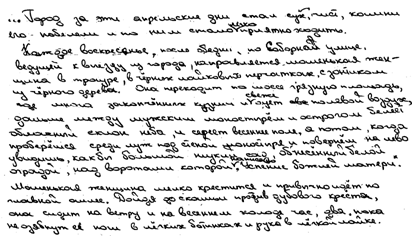 ... Город за эти апрельские дни стал суше, чист, камни
его побелели и по ним стало приятно ходить.
Каждое воскресенье, после обедни, по Соборной улице,
ведущей к выезду из города, направляется маленькая жен-
щина в трауре, в чёрных лайковых перчатках, с зонтиком
из чёрного дерева. Она переходит по шоссе грязную площадь,
где много закопчённых кузниц и свежо дует полевой воздух;
дальше между мужским монастырём и острогом белеет
облачный склон неба и сереет весеннее поле, а потом, когда
проберёшься среди луж под стеной монастыря и повернёшь налево
увидишь, как бы большой низкий сад, обнесённый белой
оградой, над воротами которой Успение божией матери.
Маленькая женщина мелко крестится и привычно идёт по
главной аллее. Дойдя до скамьи против дубового креста,
она сидит на ветру и на весеннем холоде час, два, пока
не озябнут её ноги в лёгких ботинках и рука в узкой лайке.